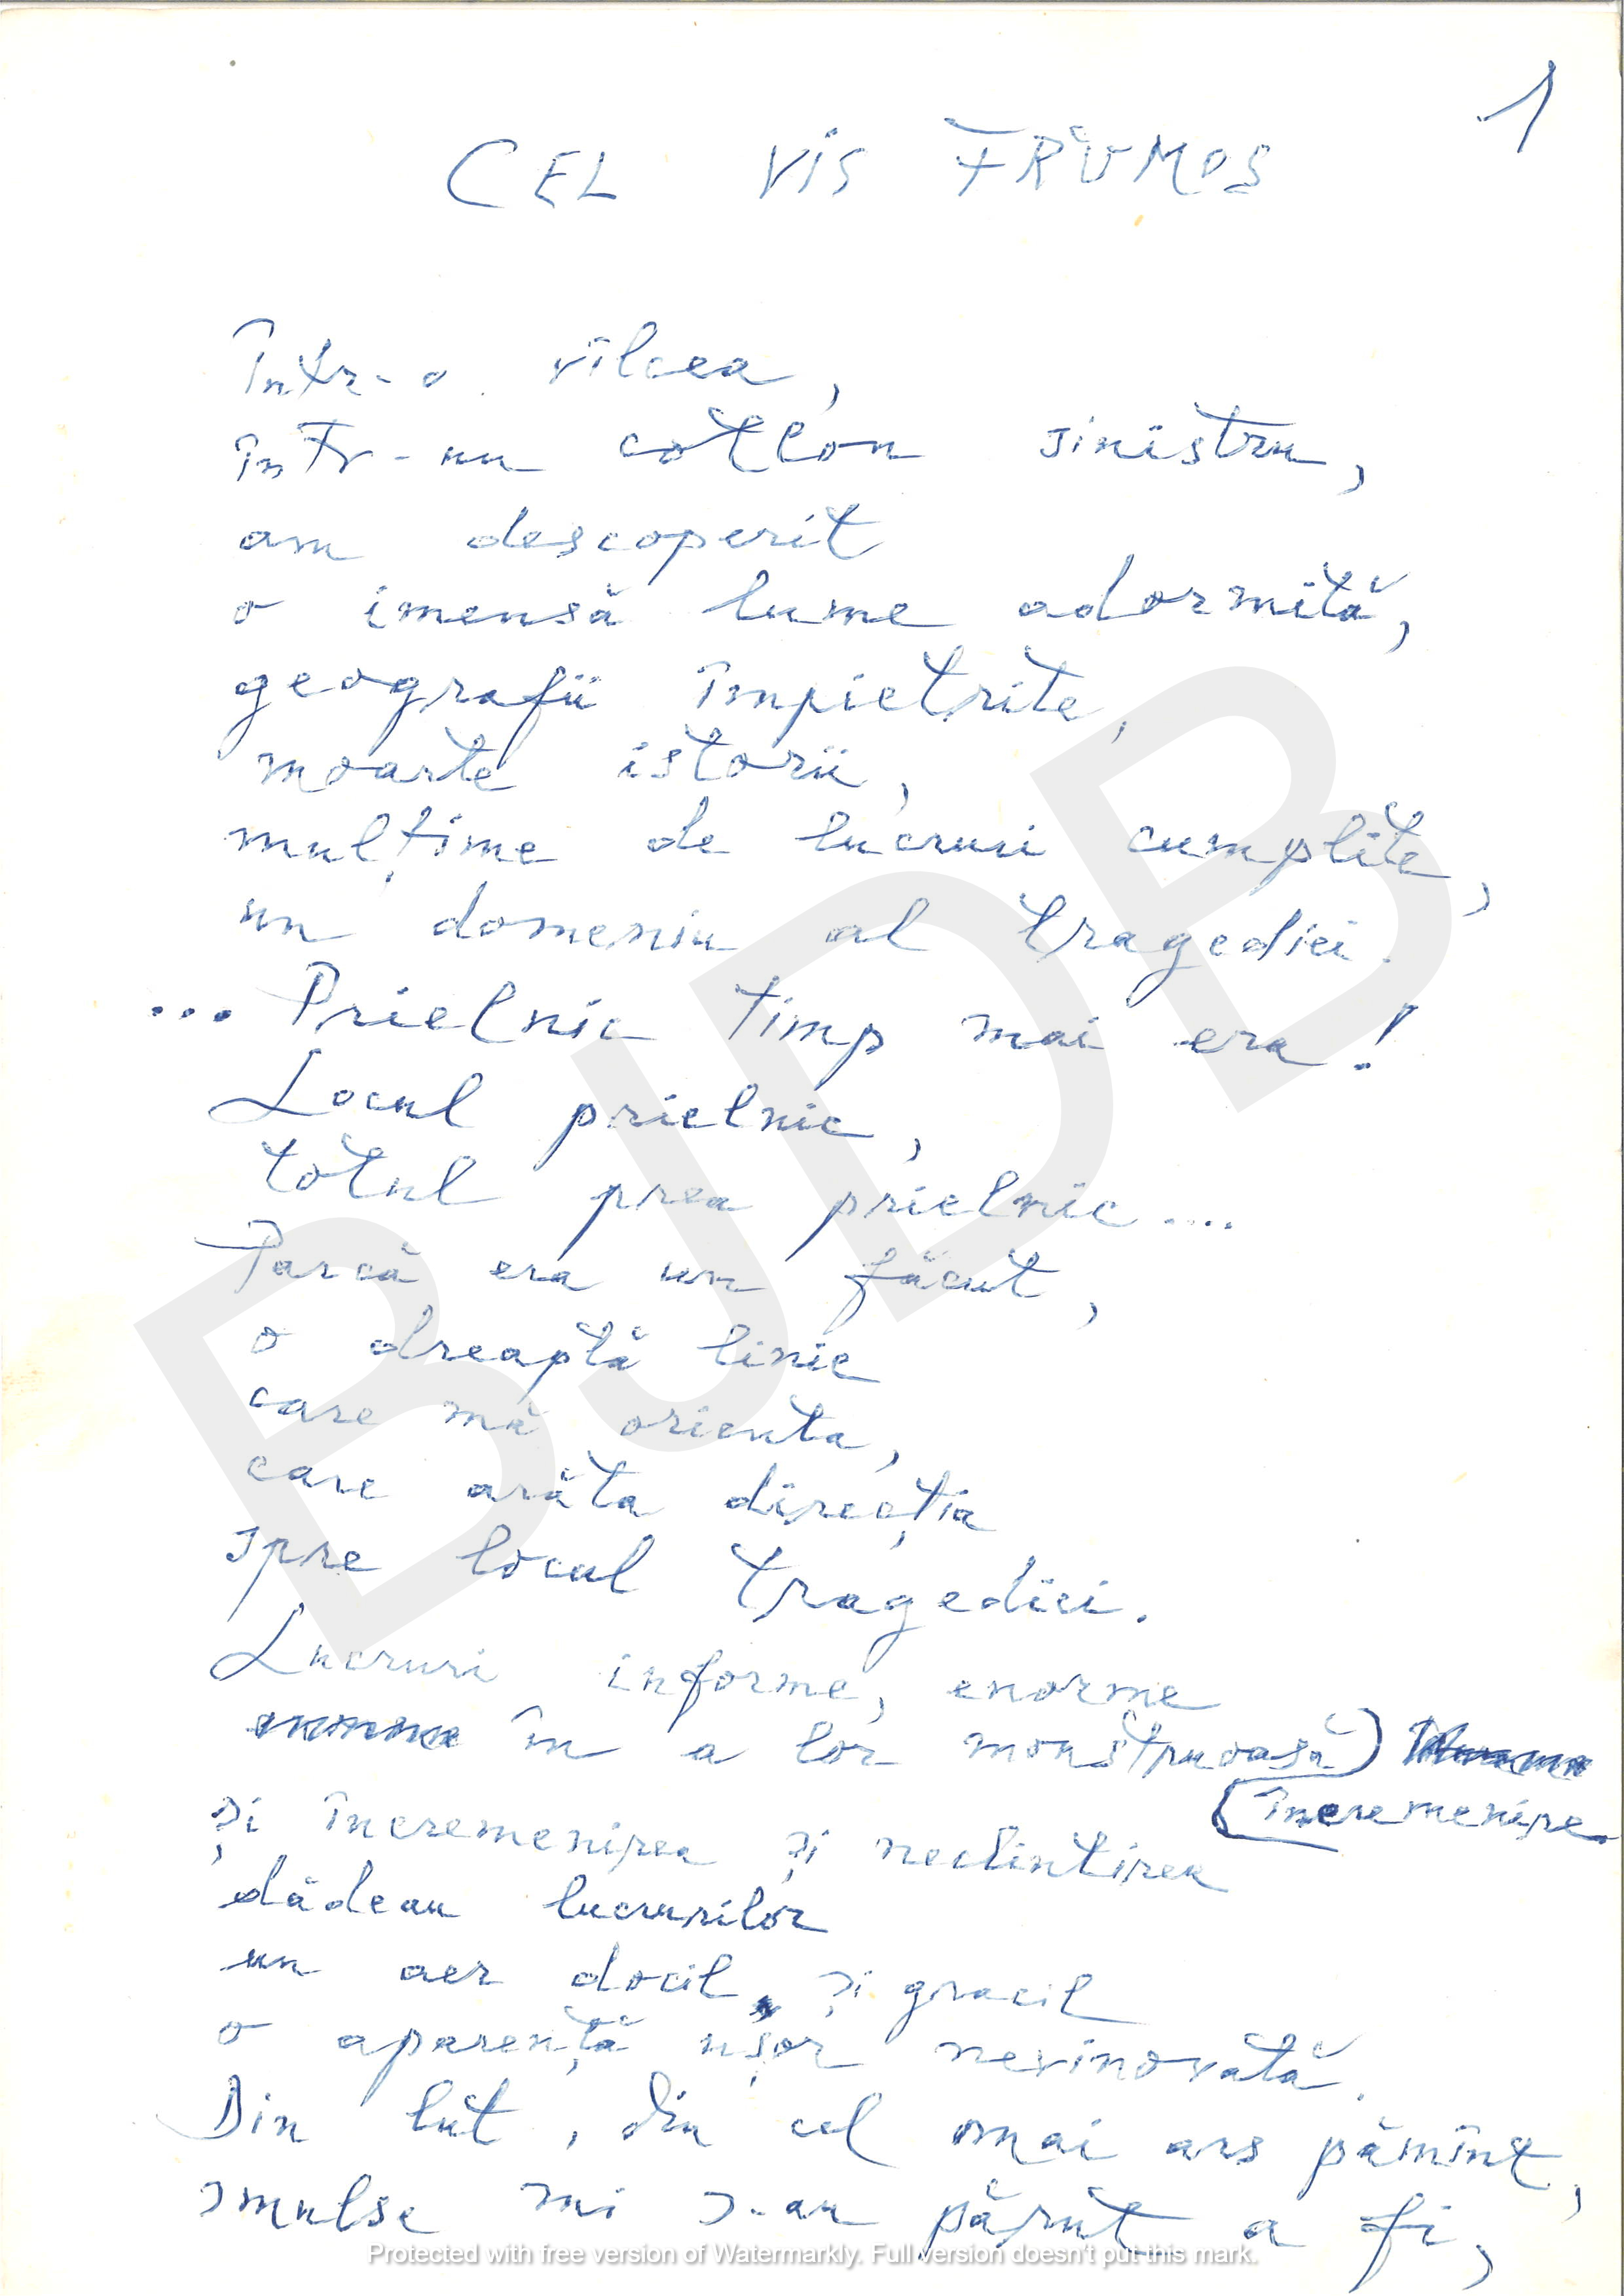 1
CEL VIS FRUMOS
Într-o vîlcea,
într-un cotlon sinistru,
am descoperit
o imensă lume adormită,
geografii împietrite,
moarte istorii,
mulțime de lucruri cumplite,
un domeniu al tragediei.
... Prielnic timp mai era!
Locul prielnic,
totul prea prielnic....
Parcă era un făcut,
o dreaptă linie
care mă orienta,
care arăta direcția
spre locul tragediei.
Lucruri informe, enorme
în a lor monstruoasă)
(încremenire.
și încremenirea și neclintirea
dădeau lucrurilor
un aer docil și gracil
o aparență ușor nevinovată.
Din lut, din cel mai ars pămînt,
smulse mi s-au părut a fi,
BJDB
Protected with free version of Watermarkly. Full version doesn't put this mark.